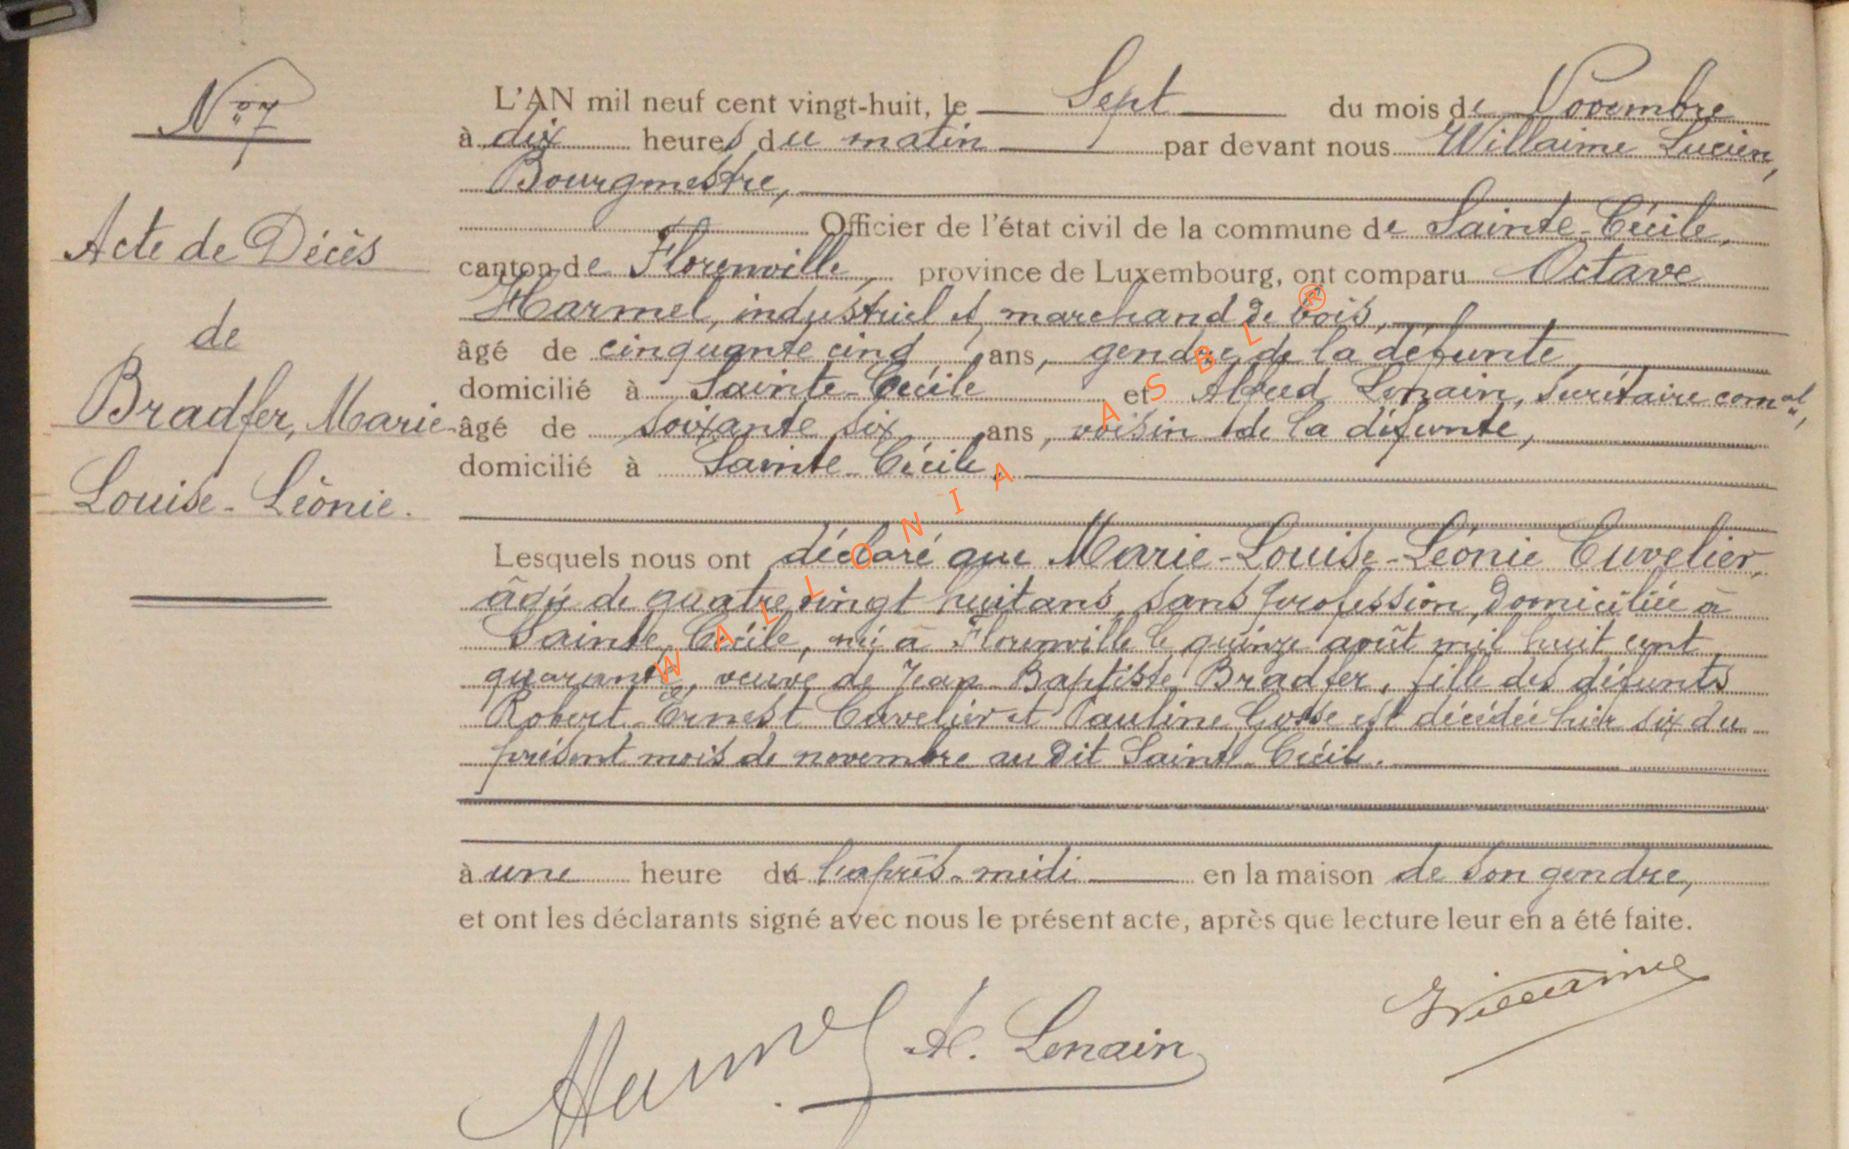 N° 7
Acte de Décès
de
Bradfer, Marie
Louise-Léonie.
L'AN mil neuf cent vingt-huit, le Sept du mois de Novembre
à dix heures du matin par devant nous Willaime Lucien,
Bourgmestre,
Officier de l'état civil de la commune de Sainte-Cécile,
canton de Florenville, province de Luxembourg, ont comparu Octave
Harmel, industriel et marchand de bois,
âgé de cinquante cinq ans, gendre de la défunte
domicilié à Sainte-Cécile et Alfred Lenain, Secrétaire comal,
âgé de soixante six ans, voisin de la défunte,
domicilié à Sainte-Cécile,
Lesquels nous ont déclaré que Marie-Louise-Léonie Cuvelier,
âgée de quatre vingt huit ans, sans profession, domiciliée à
Sainte Cécile, née à Florenville le quinze août mil huit cent
quarante, veuve de Jean Baptiste Bradfer, fille des défunts
Robert Ernest Cuvelier et Pauline Gosse est décédée hier six du
présent mois de novembre au dit Sainte-Cécile.
à une heure de l'après-midi en la maison de son gendre,
et ont les déclarants signé avec nous le présent acte, après que lecture leur en a été faite.
Harmel A. Lenain Willaime
WALLONIA ASBL ®